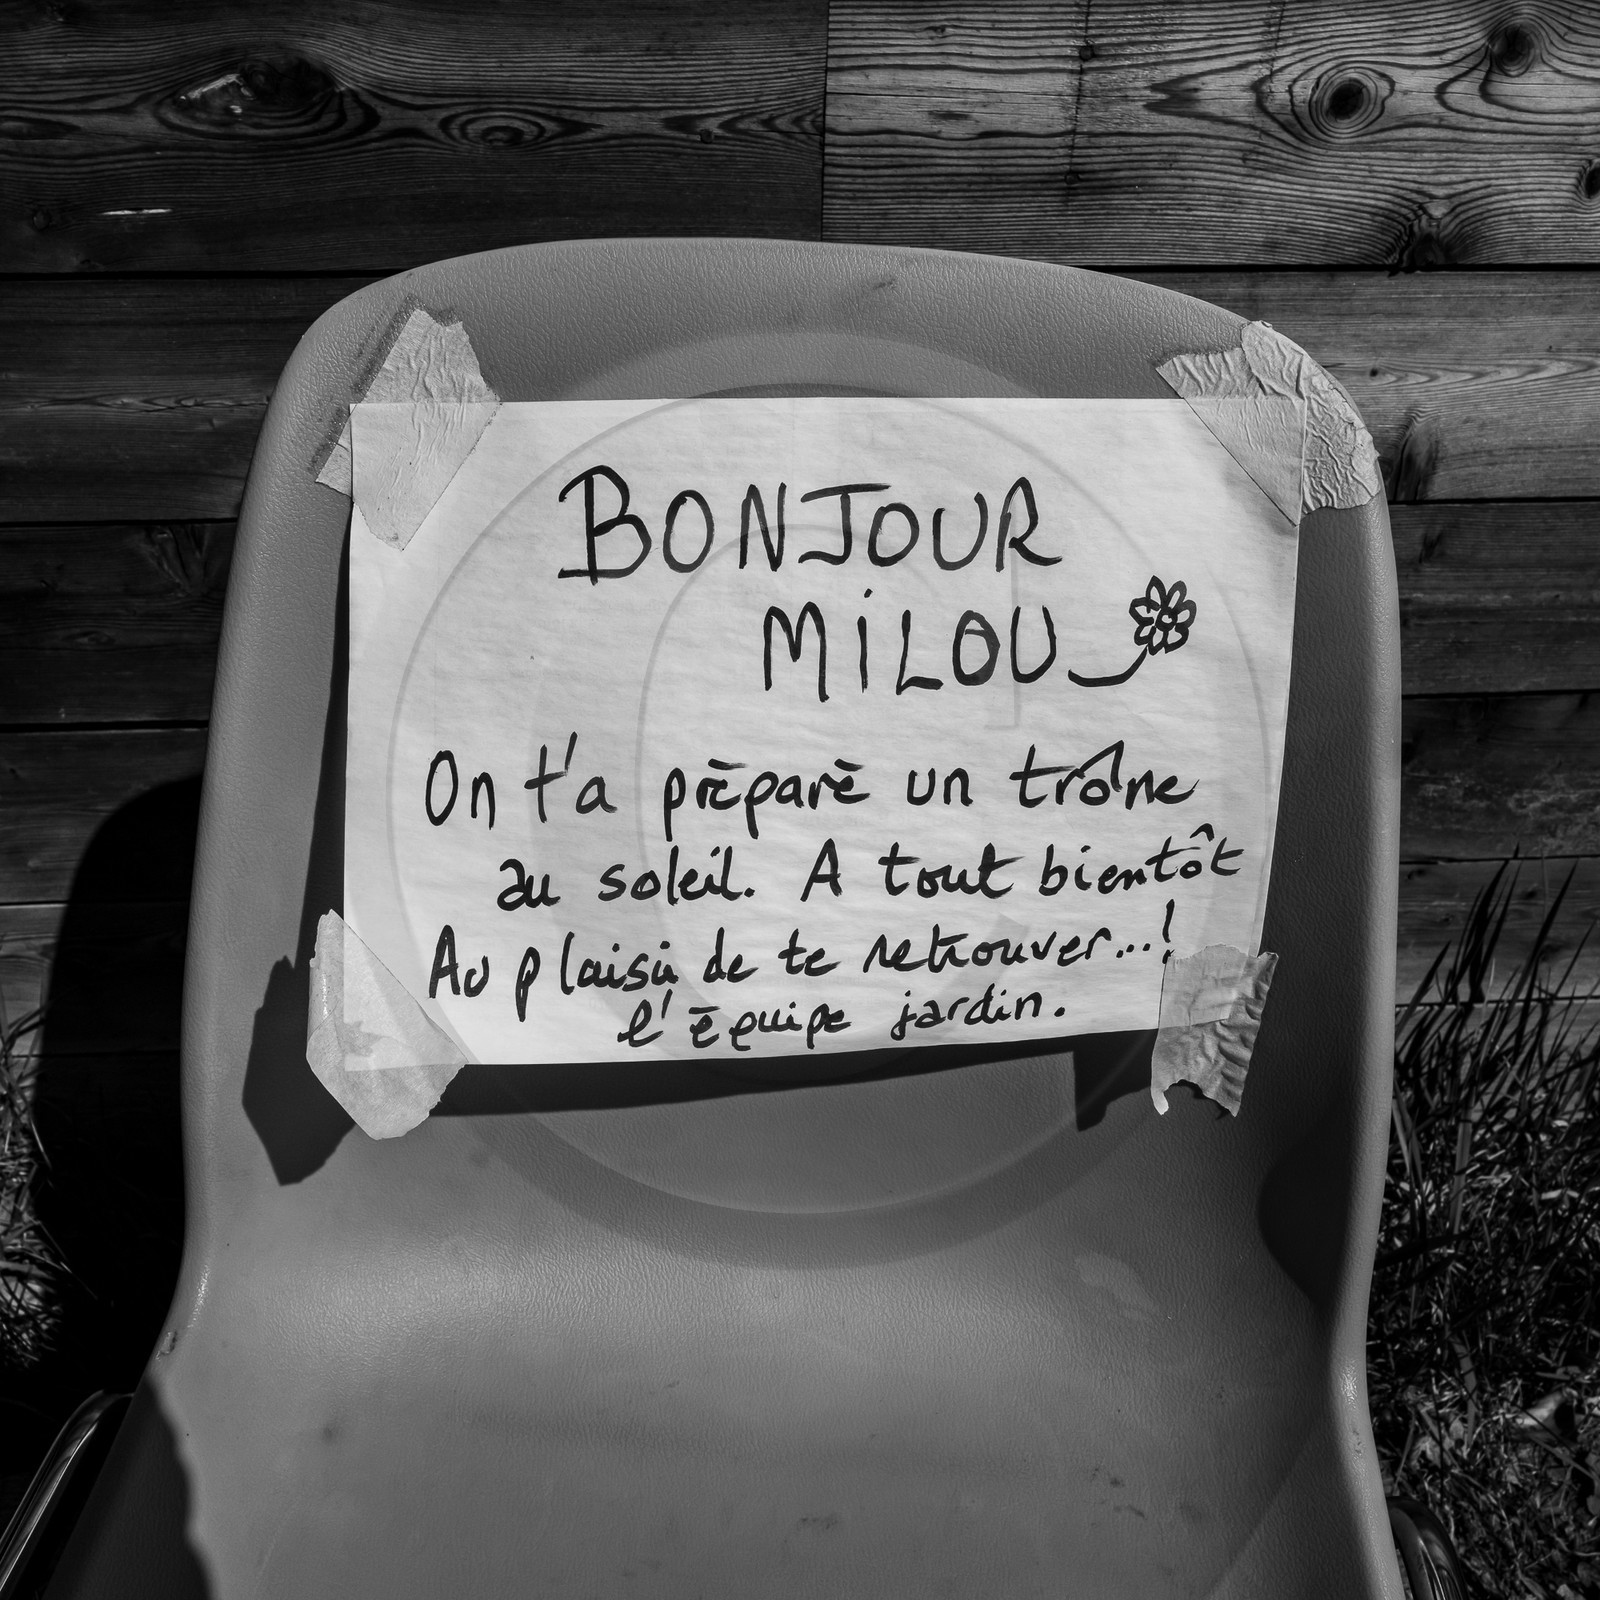 BONJOUR
MiLOU
On t'a préparé un trône
au soleil. A tout bientôt
Au plaisir de te retrouver...!
l'équipe jardin.